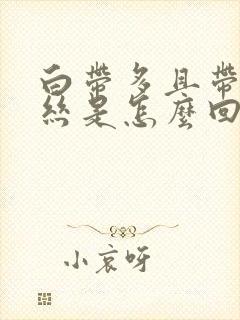 白帶多且帶
絲是怎麼回
小哀呀